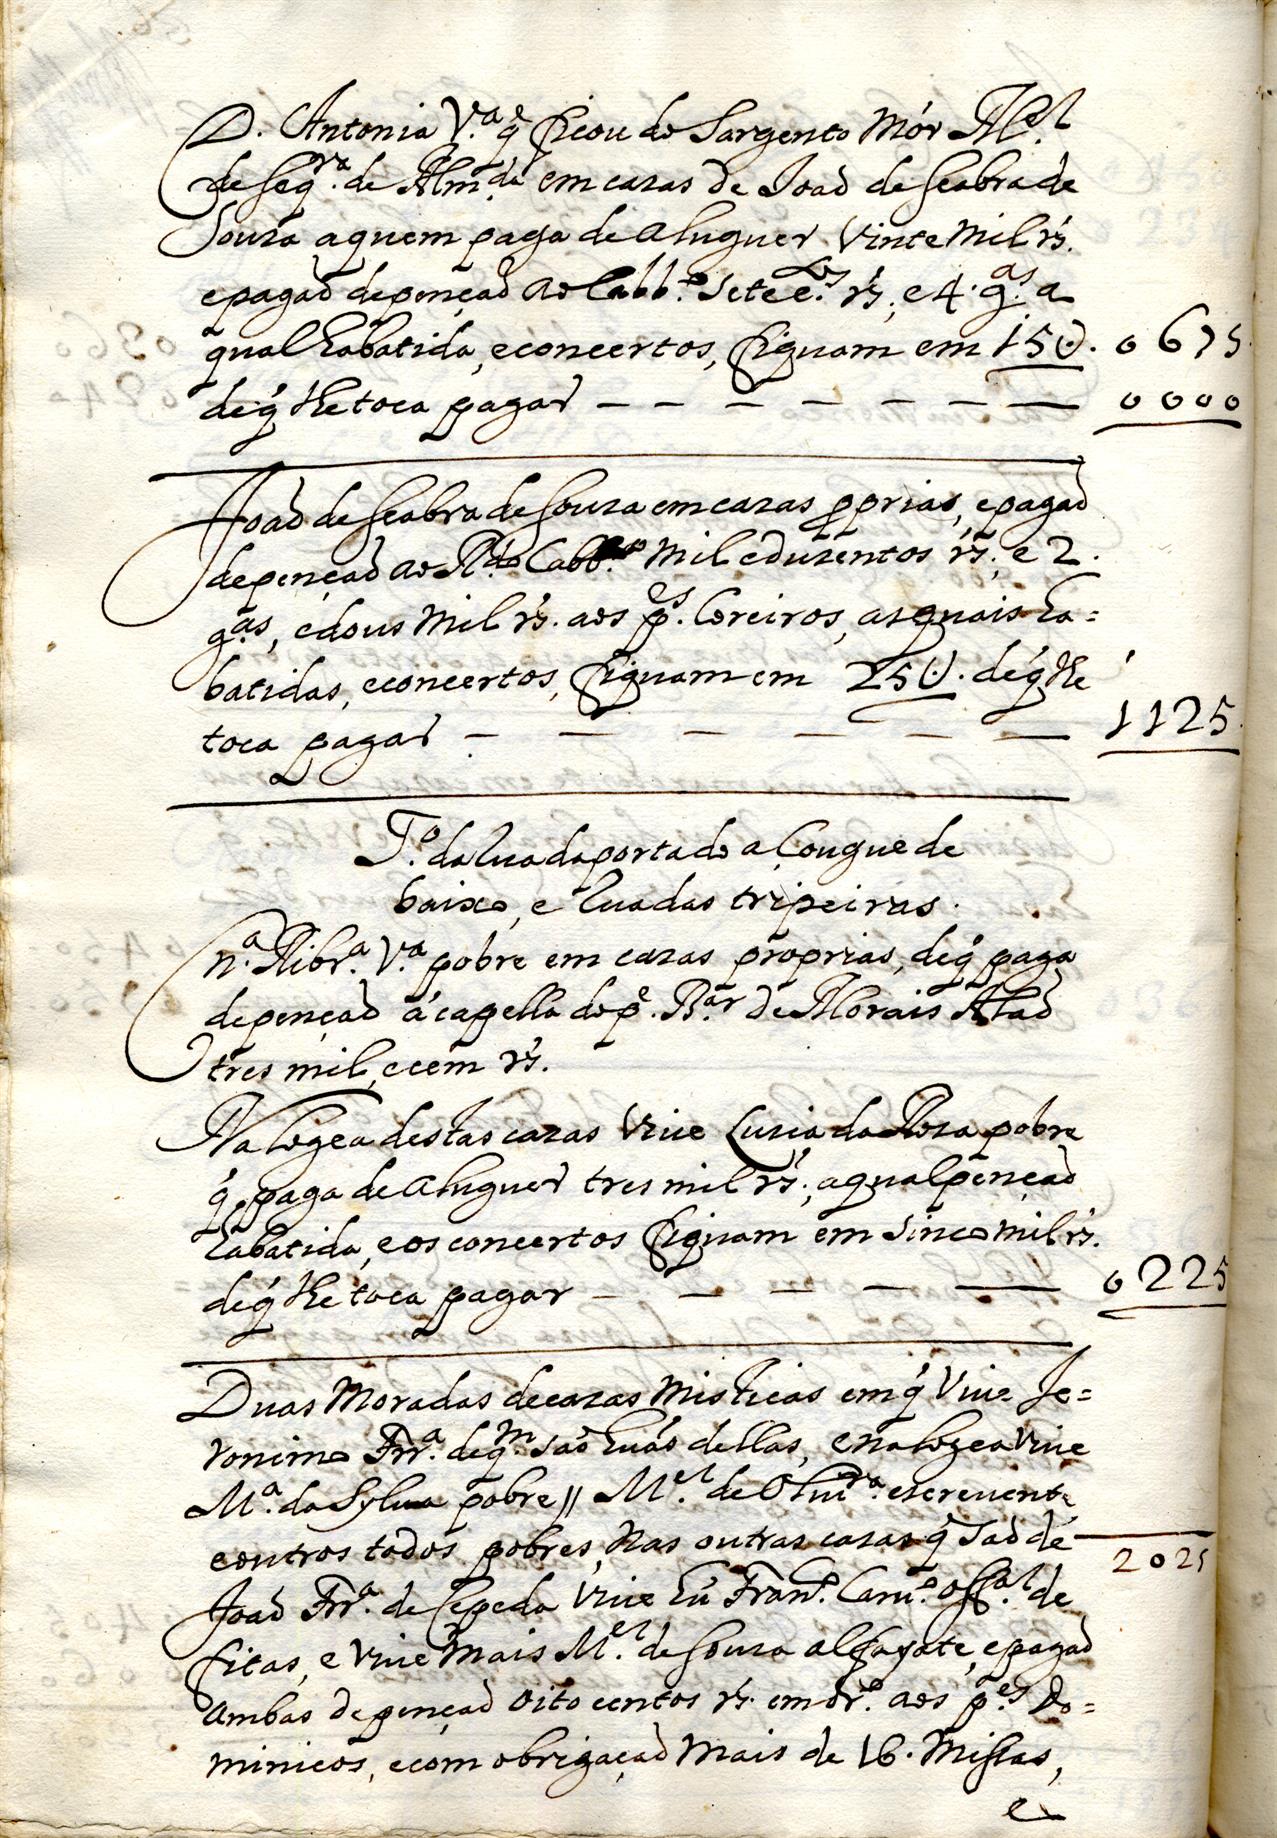 D. Antonia V.ª q̃ ficou do Sargento Mór M.el
de Seq.ra de Alm.da em cazas de Joaõ de Seabra de
Souza aquem paga de aluguer Vinte Mil rs.
epagaõ depençaõ ao Cabb.º Sete c.tos rs, e 4. g.as a
qual rabatida, econcertos, ficuam em 15U. 0675
deq̃ lhe toca pagar — — — — — — — 0000
Joaõ de Seabra de Souza em cazas pprias, epagaõ
depençaõ ao R.do Cabb.º Mil eduzentos rs, e 2.
g.as, edous Mil rs. aos p.es Coreiros, asquais ra=
batidas, econcertos, ficuam em 25U. deq̃ lhe
toca pagar — — — — — — 1125
T.º da Rua da porta do aCougue de
baixo, e Rua das tripeiras.
N.ª Ribr.ª V.ª pobre em cazas proprias, deq̃ paga
depençaõ á capella do p.e B.ar de Morais Alaõ
tres mil, ecem rs.
Na logea destas cazas Vive Luzia da Roza pobre
q̃ paga de aluguer tres mil rs, aqual pençaõ
rabatida, e os concertos ficuam em Sinco mil rs.
deq̃ lhe toca pagar — — — — — 0225
Duas Moradas decazas Misticas emq̃ Vive Je=
ronimo Frr.ª deq.m saõ huás dellas, ena logea vive
M.ª da Sylua pobre // M.el de Oliu.ra escreuente
eoutros todos pobres, Nas outras cazas q̃ saõ de
2025
Joaõ Frr.ª de Cepeda Vive hũ Fran.co Caru.º off.al de
fitas, e vive mais M.el de Souza alfayate, epagaõ
ambas depençaõ oito centos rs. em dr.º aos p.es Do=
minicos, ecom obrigaçaõ Mais de 16. Missas,
e